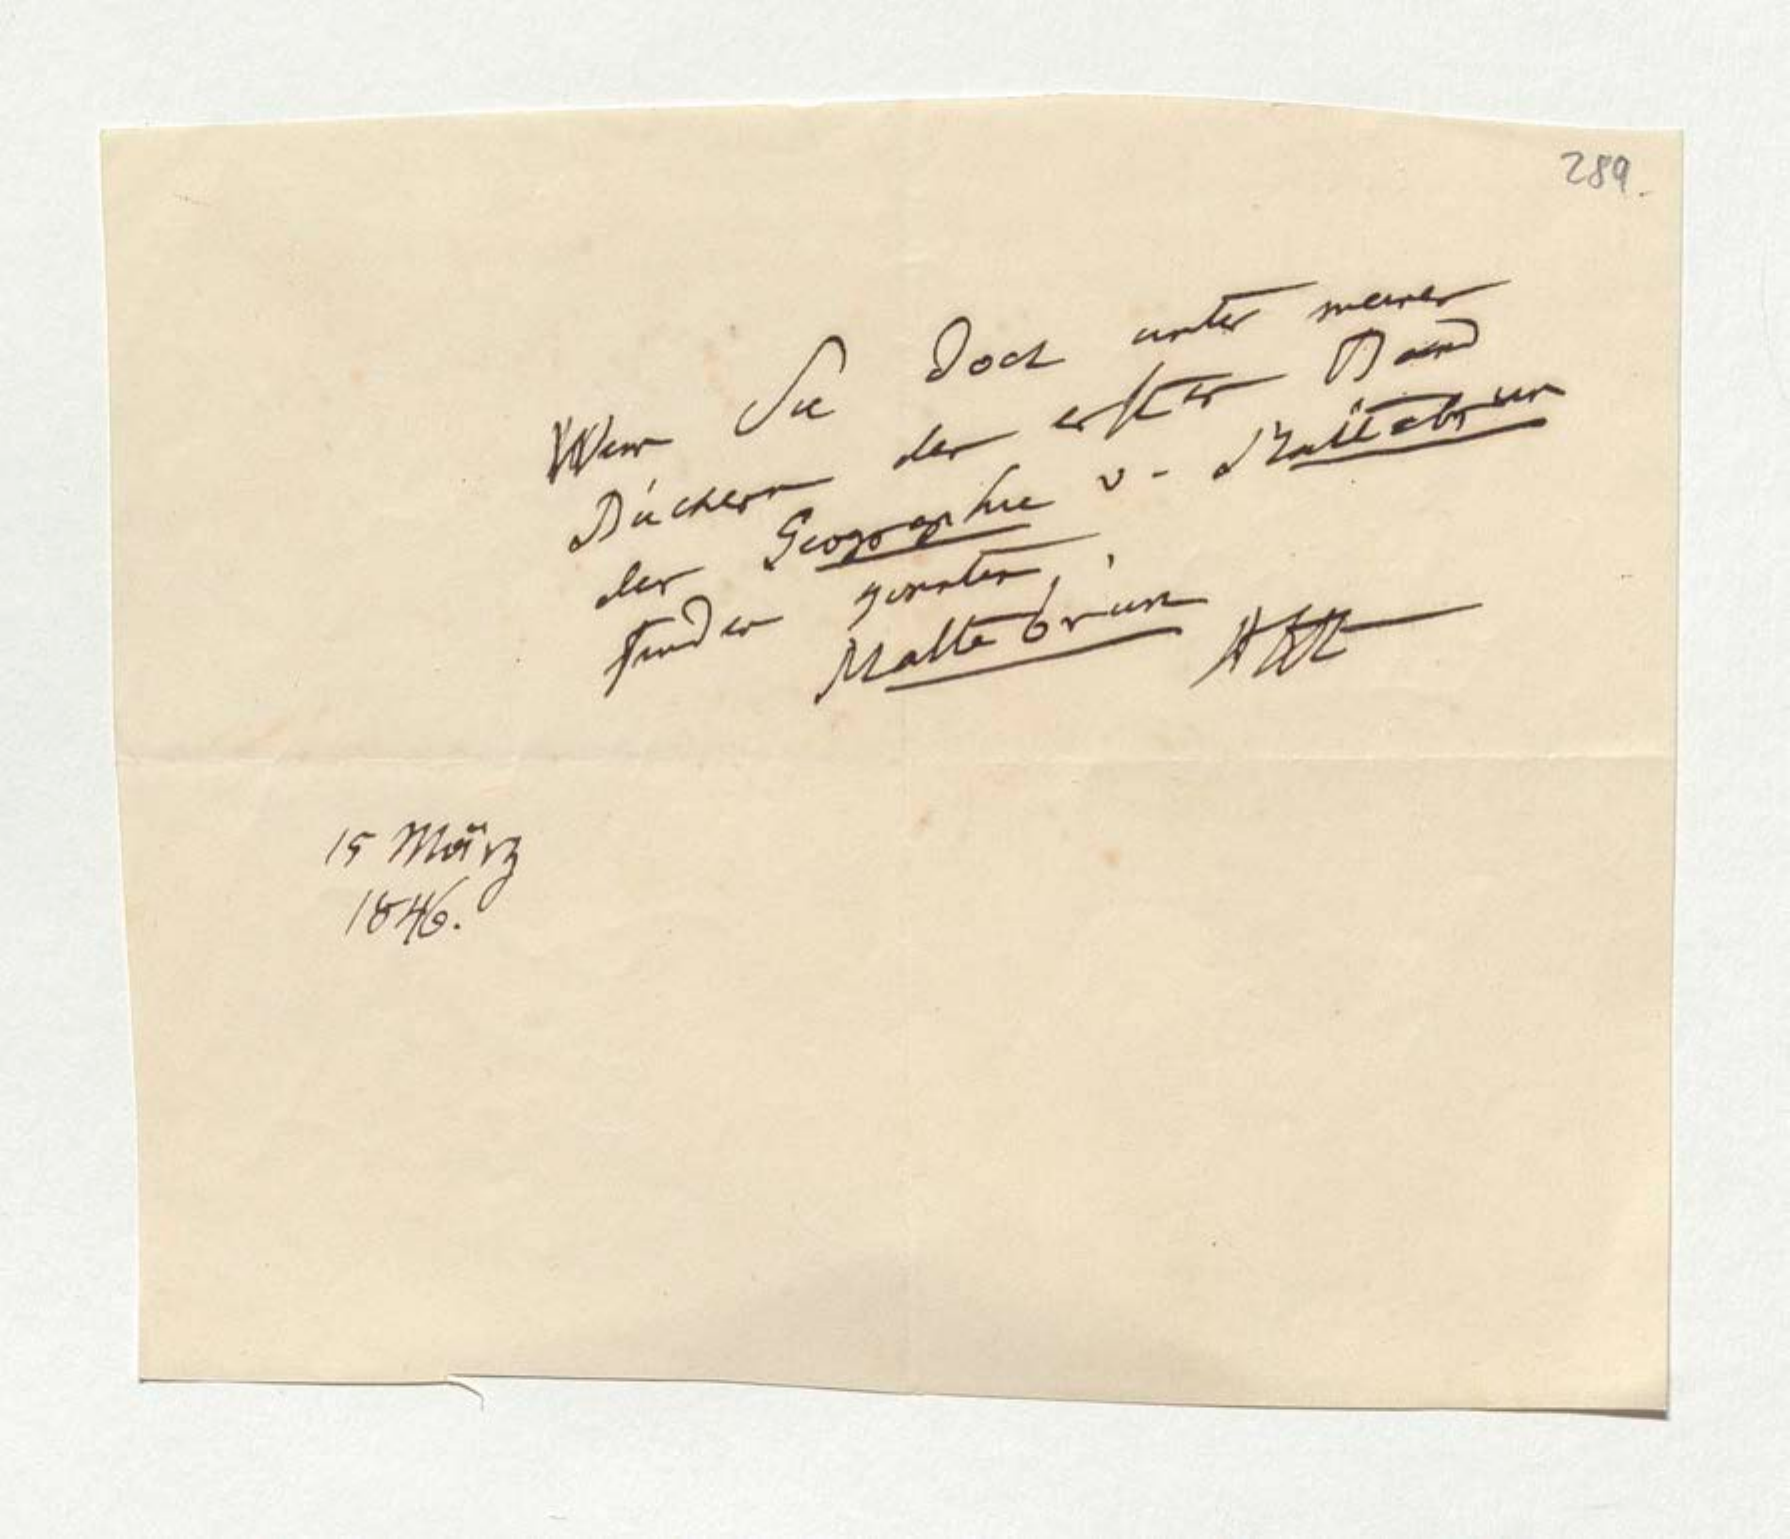 289.
Wen Sie doch unter meinen
Büchern den ersten Band
der Geographie v. Maltebrun
finden
Maltebrun
AHt
15 März
1846.